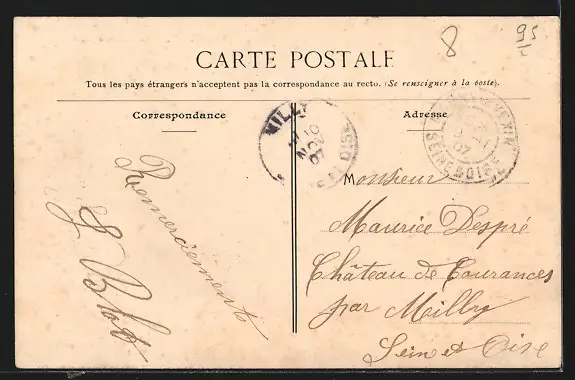 8
95
CARTE POSTALE
Tous les pays étrangers n'acceptent pas la correspondance au recto. (Se renseigner à la poste).
Correspondance
Adresse
MILLY
10
NOV
07
SEINE & OISE
07
Remerciement
Monsieur
Maurice Despré
Château de Courances
par Milly
Sein et Oise